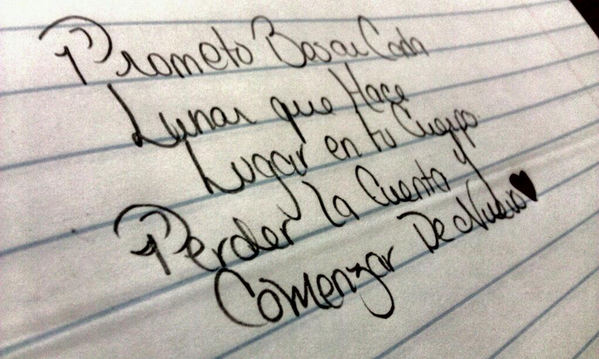 Prometo Besar Cada
Lunar que Hace
Lugar en tu Cuerpo
Perder la Cuenta y
Comenzar De Nuevo ♥